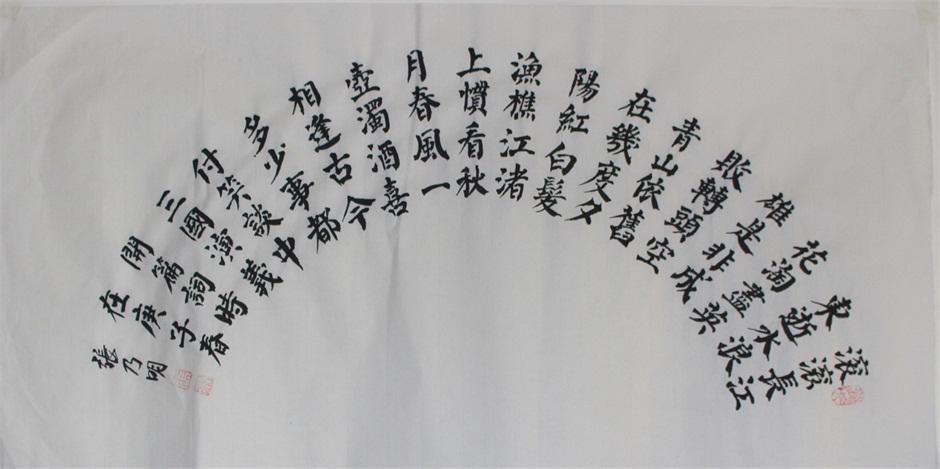 滚滚長江
東逝水浪
花淘盡英
雄是非成
敗轉頭空
青山依舊
在幾度夕
陽紅白髮
漁樵江渚
上慣看秋
月春風一
壺濁酒喜
相逢古今
多少事都
付笑談中
三國演義
開篇詞時
在庚子春
張乃明